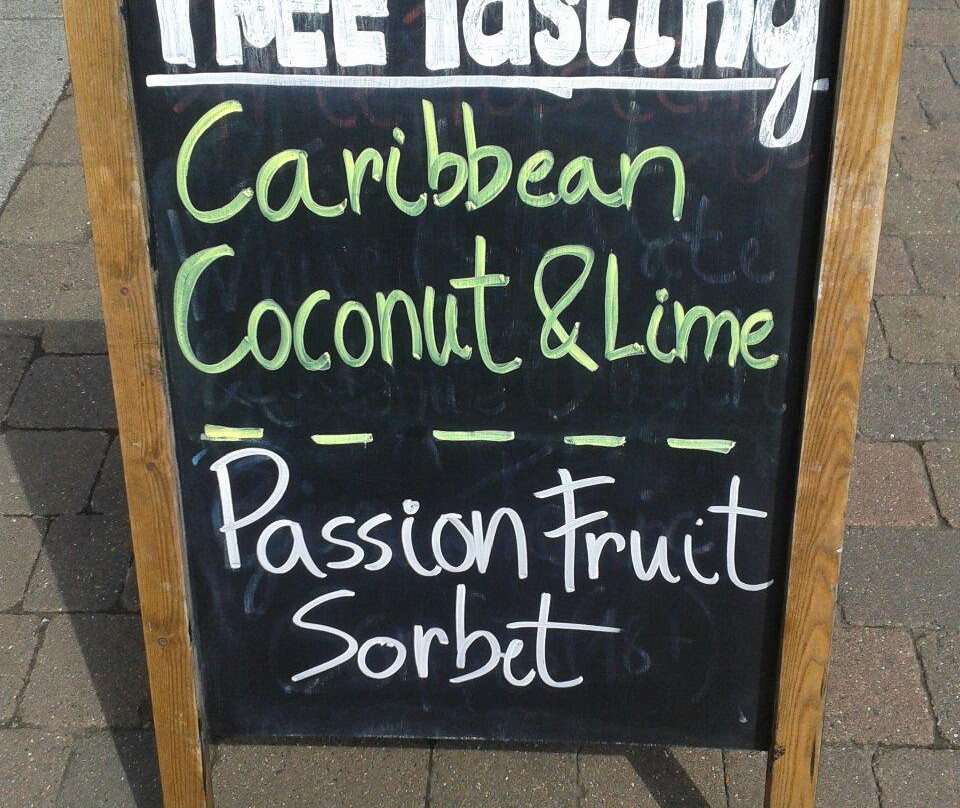 FREE Tasting
Caribbean
Coconut & Lime
Passion Fruit
Sorbet